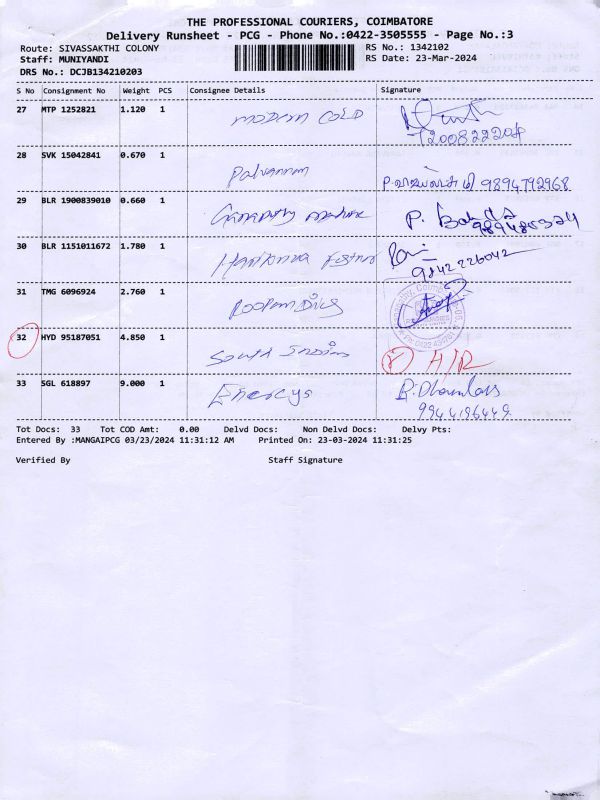 THE PROFESSIONAL COURIERS, COIMBATORE
Delivery Runsheet - PCG - Phone No.:0422-3505555 - Page No.:3
Route: SIVASSAKTHI COLONY RS No.: 1342102
Staff: MUNIYANDI RS Date: 23-Mar-2024
DRS No.: DCJB134210203
S No Consignment No Weight PCS Consignee Details Signature
27 MTP 1252821 1.120 1 modern cold
7200822208
28 SVK 15042841 0.670 1
9894792968
29 BLR 1900839010 0.660 1 P.
30 BLR 1151011672 1.780 1
9842226042
31 TMG 6096924 2.760 1
32 HYD 95187051 4.850 1 South Indian H/R
33 SGL 618897 9.000 1 Enercys
9944196449
Tot Docs: 33 Tot COD Amt: 0.00 Delvd Docs: Non Delvd Docs: Delvy Pts:
Entered By :MANGAIPCG 03/23/2024 11:31:12 AM Printed On: 23-03-2024 11:31:25
Verified By Staff Signature